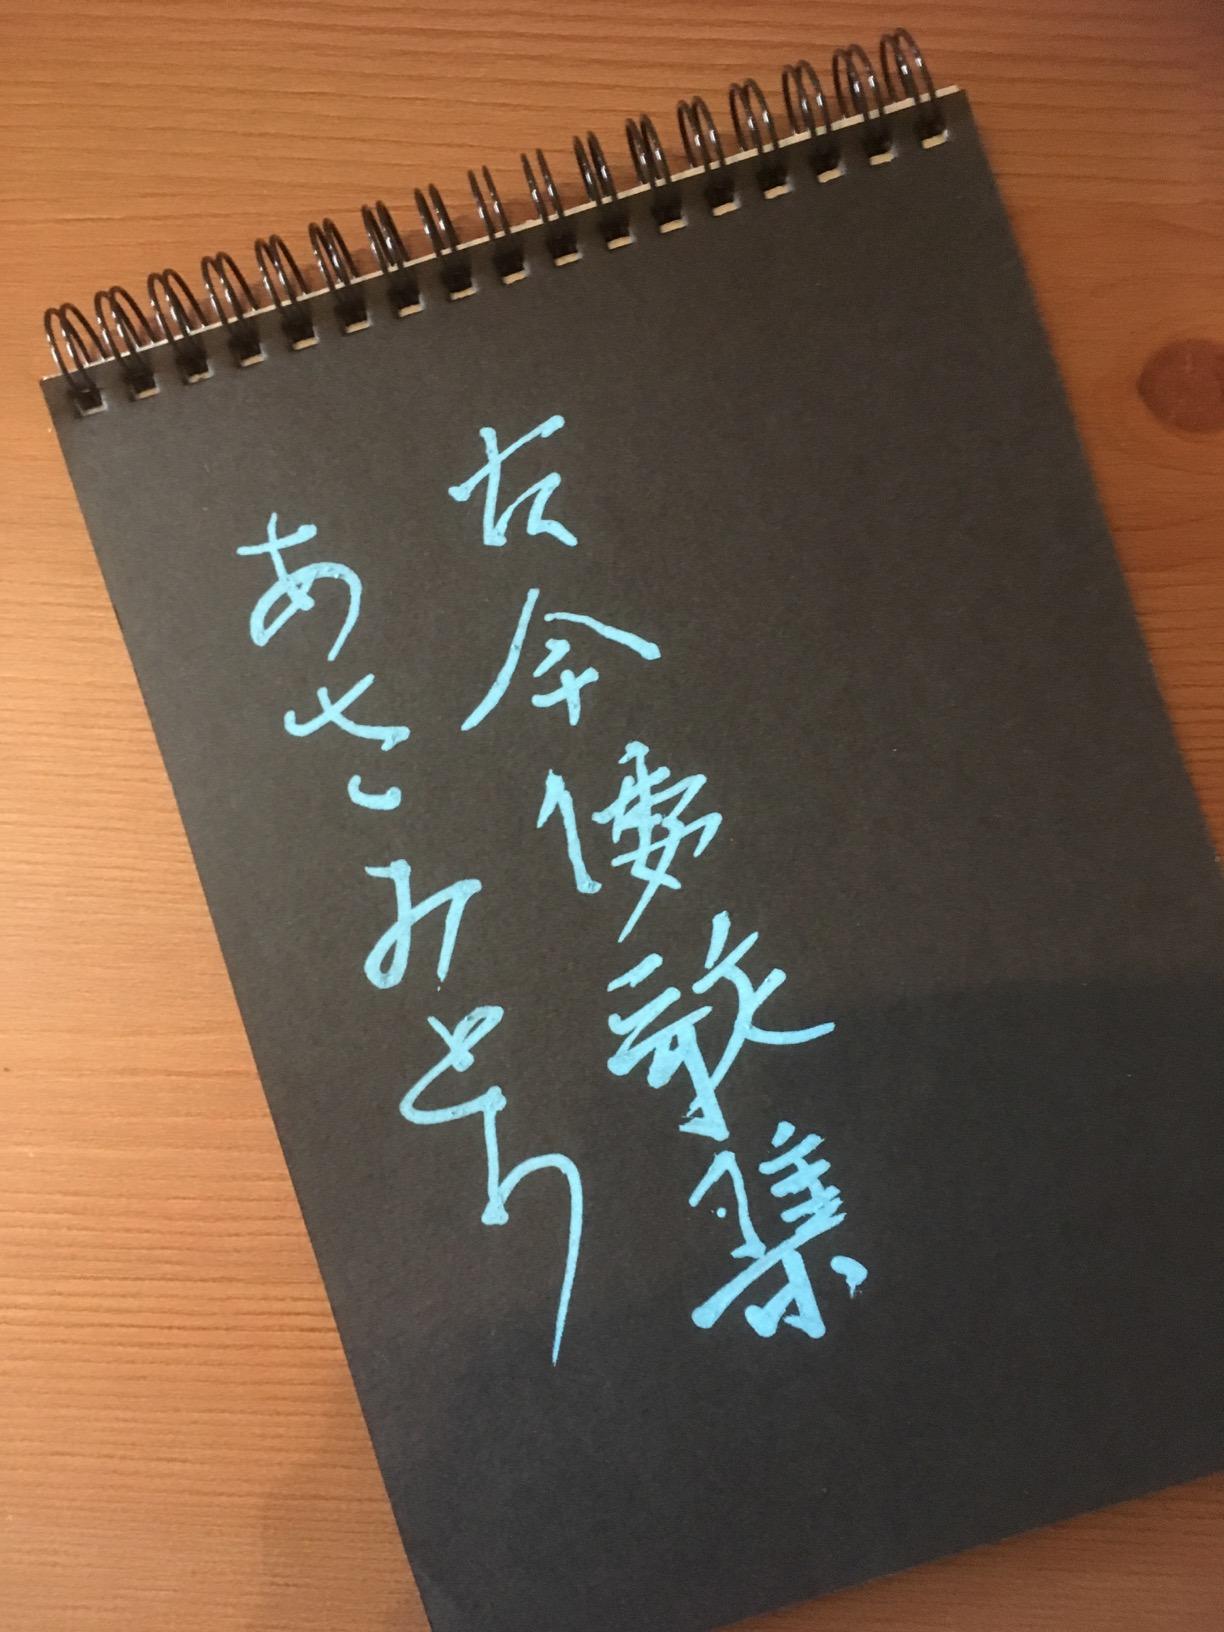 古今倭歌集
あさみとり